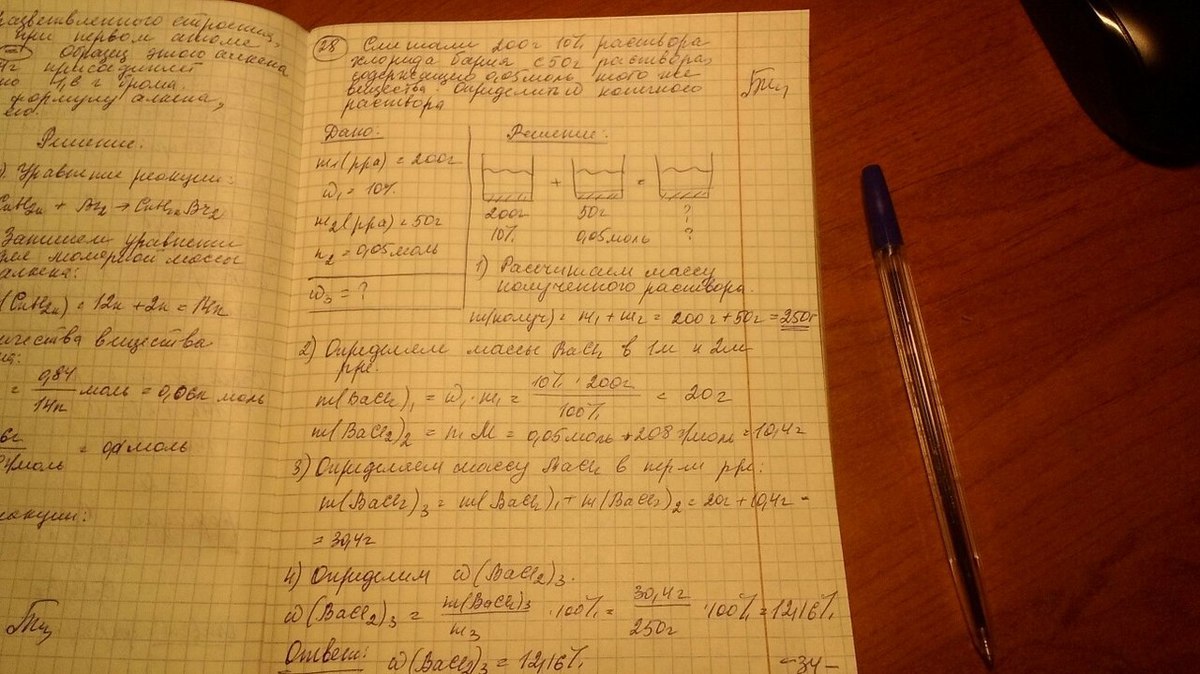 разветвленного строения,
при первом атоме
образец этого алкена
присоединяет
1,6 г брома.
формулу алкена,
его.
Решение.
). Уравнение реакции:
CnH2n + Br2 → CnH2nBr2
Запишем уравнения
молярной массы
алкена:
(CnH2n) = 12n + 2n = 14n
количества вещества
= 0,84/14n моль = 0,06n моль
= 0,01 моль
реакции:
28 Смешали 200г 10% раствора
хлорида бария с 50г раствора,
содержащего 0,05моль этого же
вещества. Определить ω конечного
раствора
Дано:
m1(рра) = 200г
ω1 = 10%
m2(рра) = 50г
n2 = 0,05моль
ω3 = ?
Решение:
+ =
200г 50г ?
10% 0,05моль ?
1) Рассчитаем массу
полученного раствора.
m(получ) = m1 + m2 = 200г + 50г = 250г
2) Определяем массы BaCl2 в 1м и 2м
рре.
m(BaCl2)1 = ω1 · m1 = 10% · 200г / 100% = 20г
m(BaCl2)2 = n · M = 0,05моль · 208 г/моль = 10,4г
3) Определяем массу BaCl2 в рре:
m(BaCl2)3 = m(BaCl2)1 + m(BaCl2)2 = 20г + 10,4г =
= 30,4г
4) Определим ω(BaCl2)3.
ω(BaCl2)3 = m(BaCl2)3 / m3 · 100% = 30,4г / 250г · 100% = 12,16%
Ответ: ω(BaCl2)3 = 12,16%
-34-